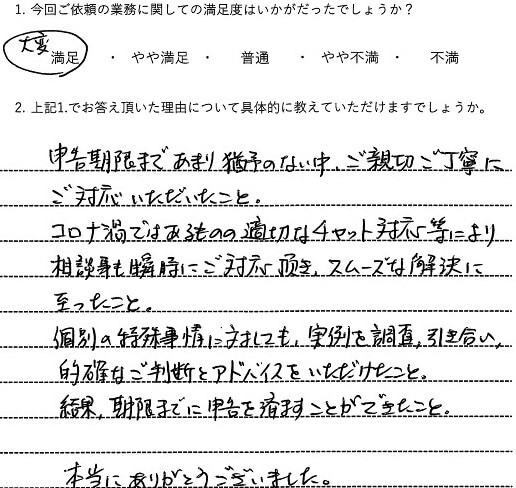 1. 今回ご依頼の業務に関しての満足度はいかがだったでしょうか？
大変満足 ・ やや満足 ・ 普通 ・ やや不満 ・ 不満
2. 上記1.でお答え頂いた理由について具体的に教えていただけますでしょうか。
申告期限まであまり猶予のない中、ご親切ご丁寧に
ご対応いただいたこと。
コロナ渦ではあるものの適切なチャット対応等により
相談事も瞬時にご対応頂き、スムーズな解決に
至ったこと。
個別の特殊事情に対しても、実例を調査、引き合い、
的確なご判断とアドバイスをいただけたこと。
結果、期限までに申告を済ますことができたこと。
本当にありがとうございました。